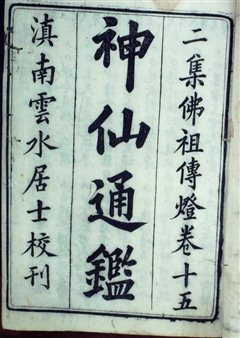 二集佛祖傳燈卷十五
神仙通鑑
滇南雲水居士校刊